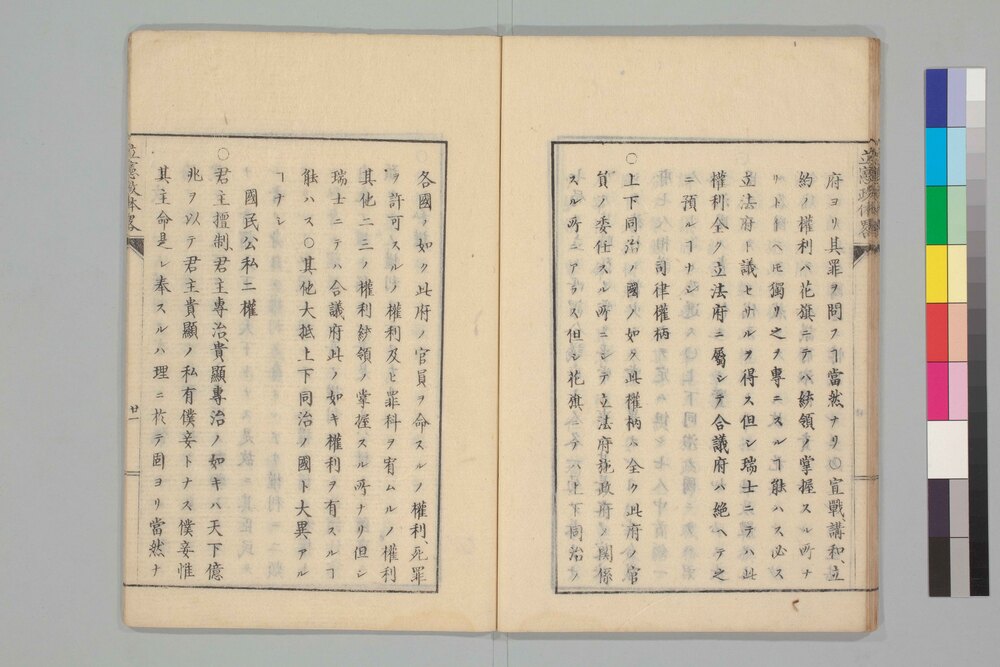 府ヨリ其罪ヲ問フヿ當然ナリ○宣戰、講和、立
約ノ權利ハ花旗ニテハ統領ノ掌握スル所ナ
リト𪜈獨リ之ヲ專ニスルヿ能ハス必ス
立法府ト議セサルヲ得ス但シ瑞士ニテハ此
權利全ク立法府ニ屬シテ合議府ハ絶ヘテ之
ニ預ルヿナシ
司律權柄
○上下同治ノ國ノ如キ此權柄ハ全ク此府ノ官
員ノ委任スル所ニシテ立法府施政府ノ關係
スル所ニアラス但シ花旗ニテハ上下同治ノ
立憲政體略
各國ノ如ク此府ノ官員ヲ命スルノ權利、死罪
ヲ許可スルノ權利及ヒ罪科ヲ宥ムルノ權利
其他二三ノ權利統領ノ掌握スル所ナリ但シ
瑞士ニテハ合議府此ノ如キ權利ヲ有スルヿ
能ハス○其他大抵上下同治ノ國ト大異アル
ヿナシ
國民公私二權
○君主擅制、君主專治、貴顯專治ノ如キハ天下億
兆ヲ以テ君主貴顯ノ私有僕妾トナス僕妾惟
其主命是レ奉スルハ理ニ於テ固ヨリ當然ナ
立憲政體略
廿一